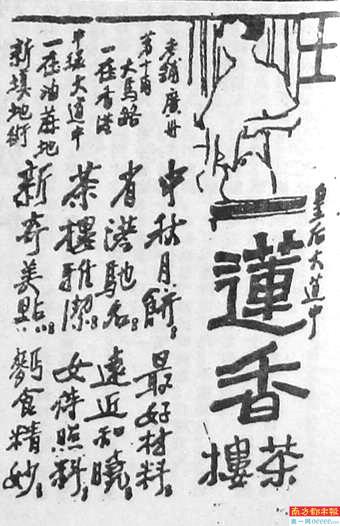 皇后大道中
蓮香
茶樓
老鋪廣州
第十甫
大馬路
一在香港
中環大道中
一在油蔴地
新填地街
中秋月餅。最好材料。
省港馳名。遠近知曉。
茶樓雅潔。女侍照料。
新奇美點。麪食精妙。
南方都市报
奥一网oeeee.com